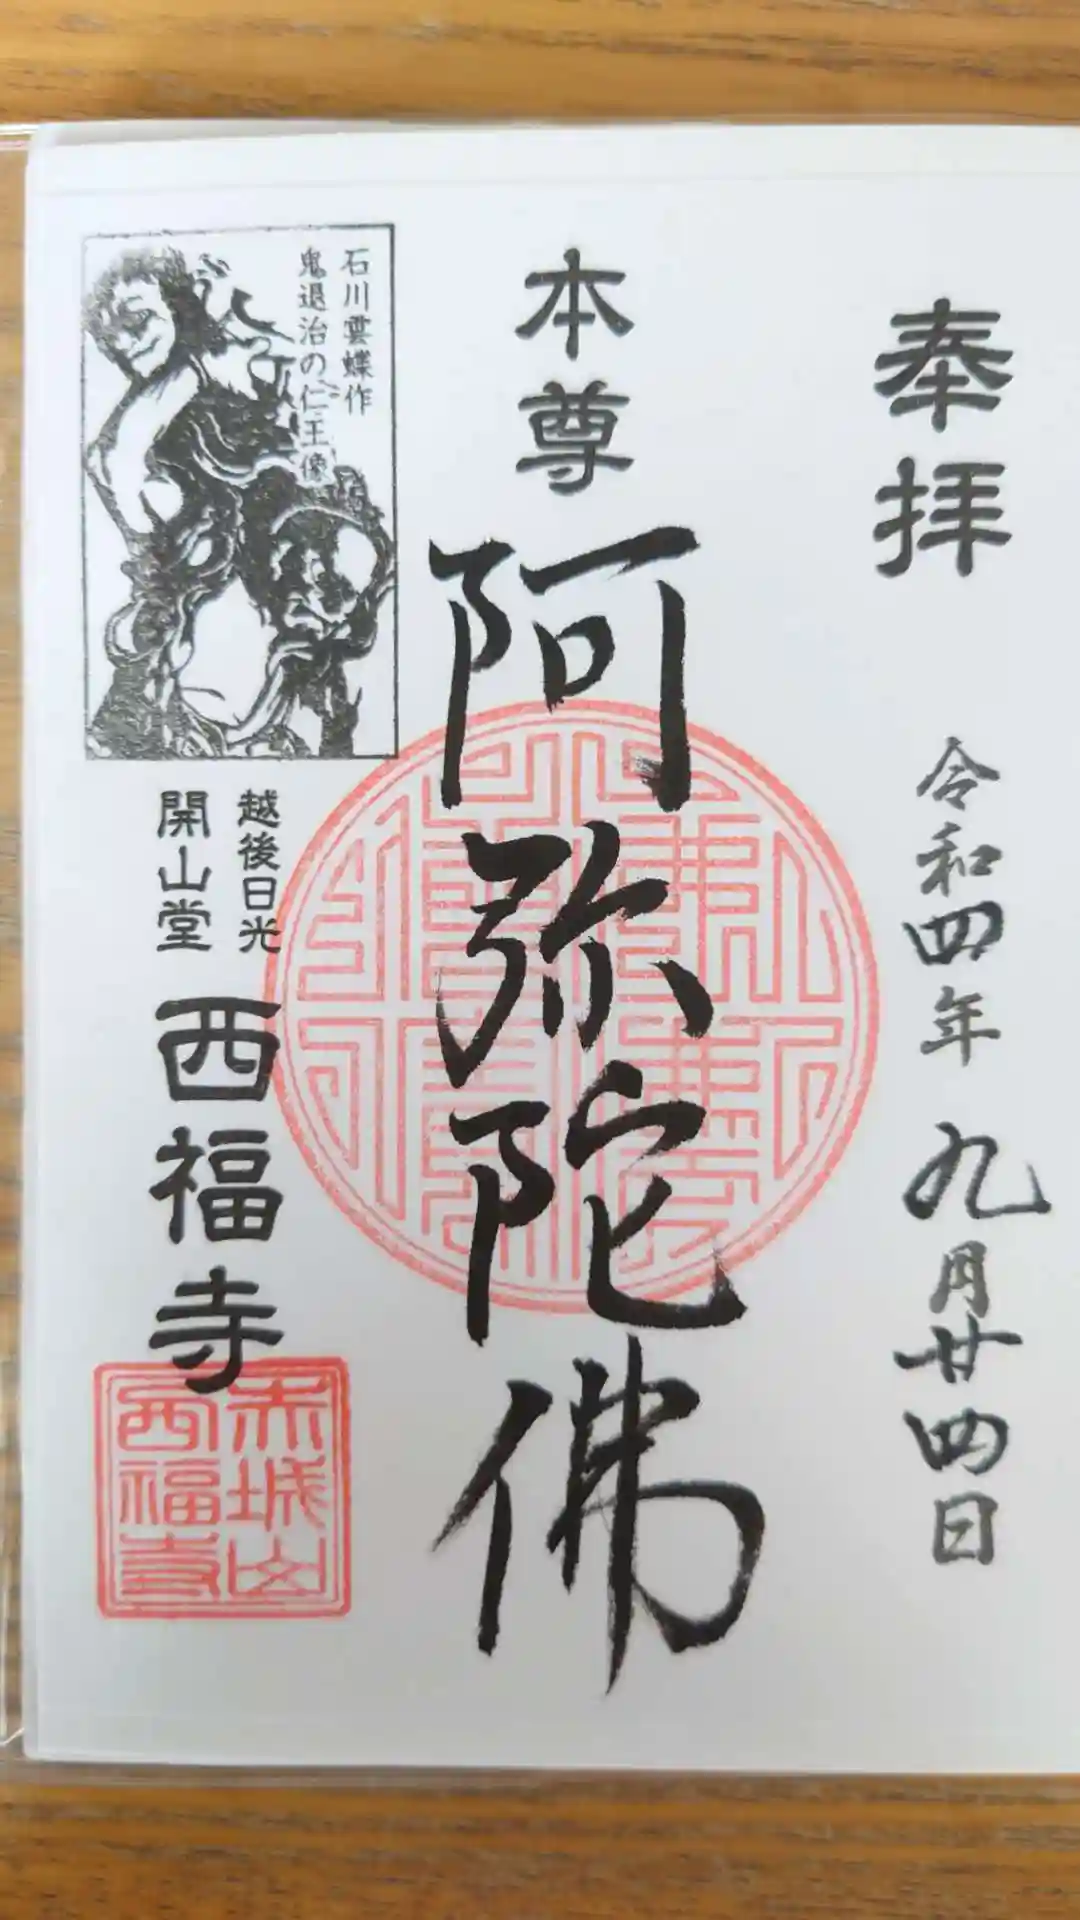 奉拝
令和四年九月廿四日
本尊
阿弥陀佛
石川雲蝶作
鬼退治の仁王像
越後日光
開山堂
西福寺
赤城山
西福寺